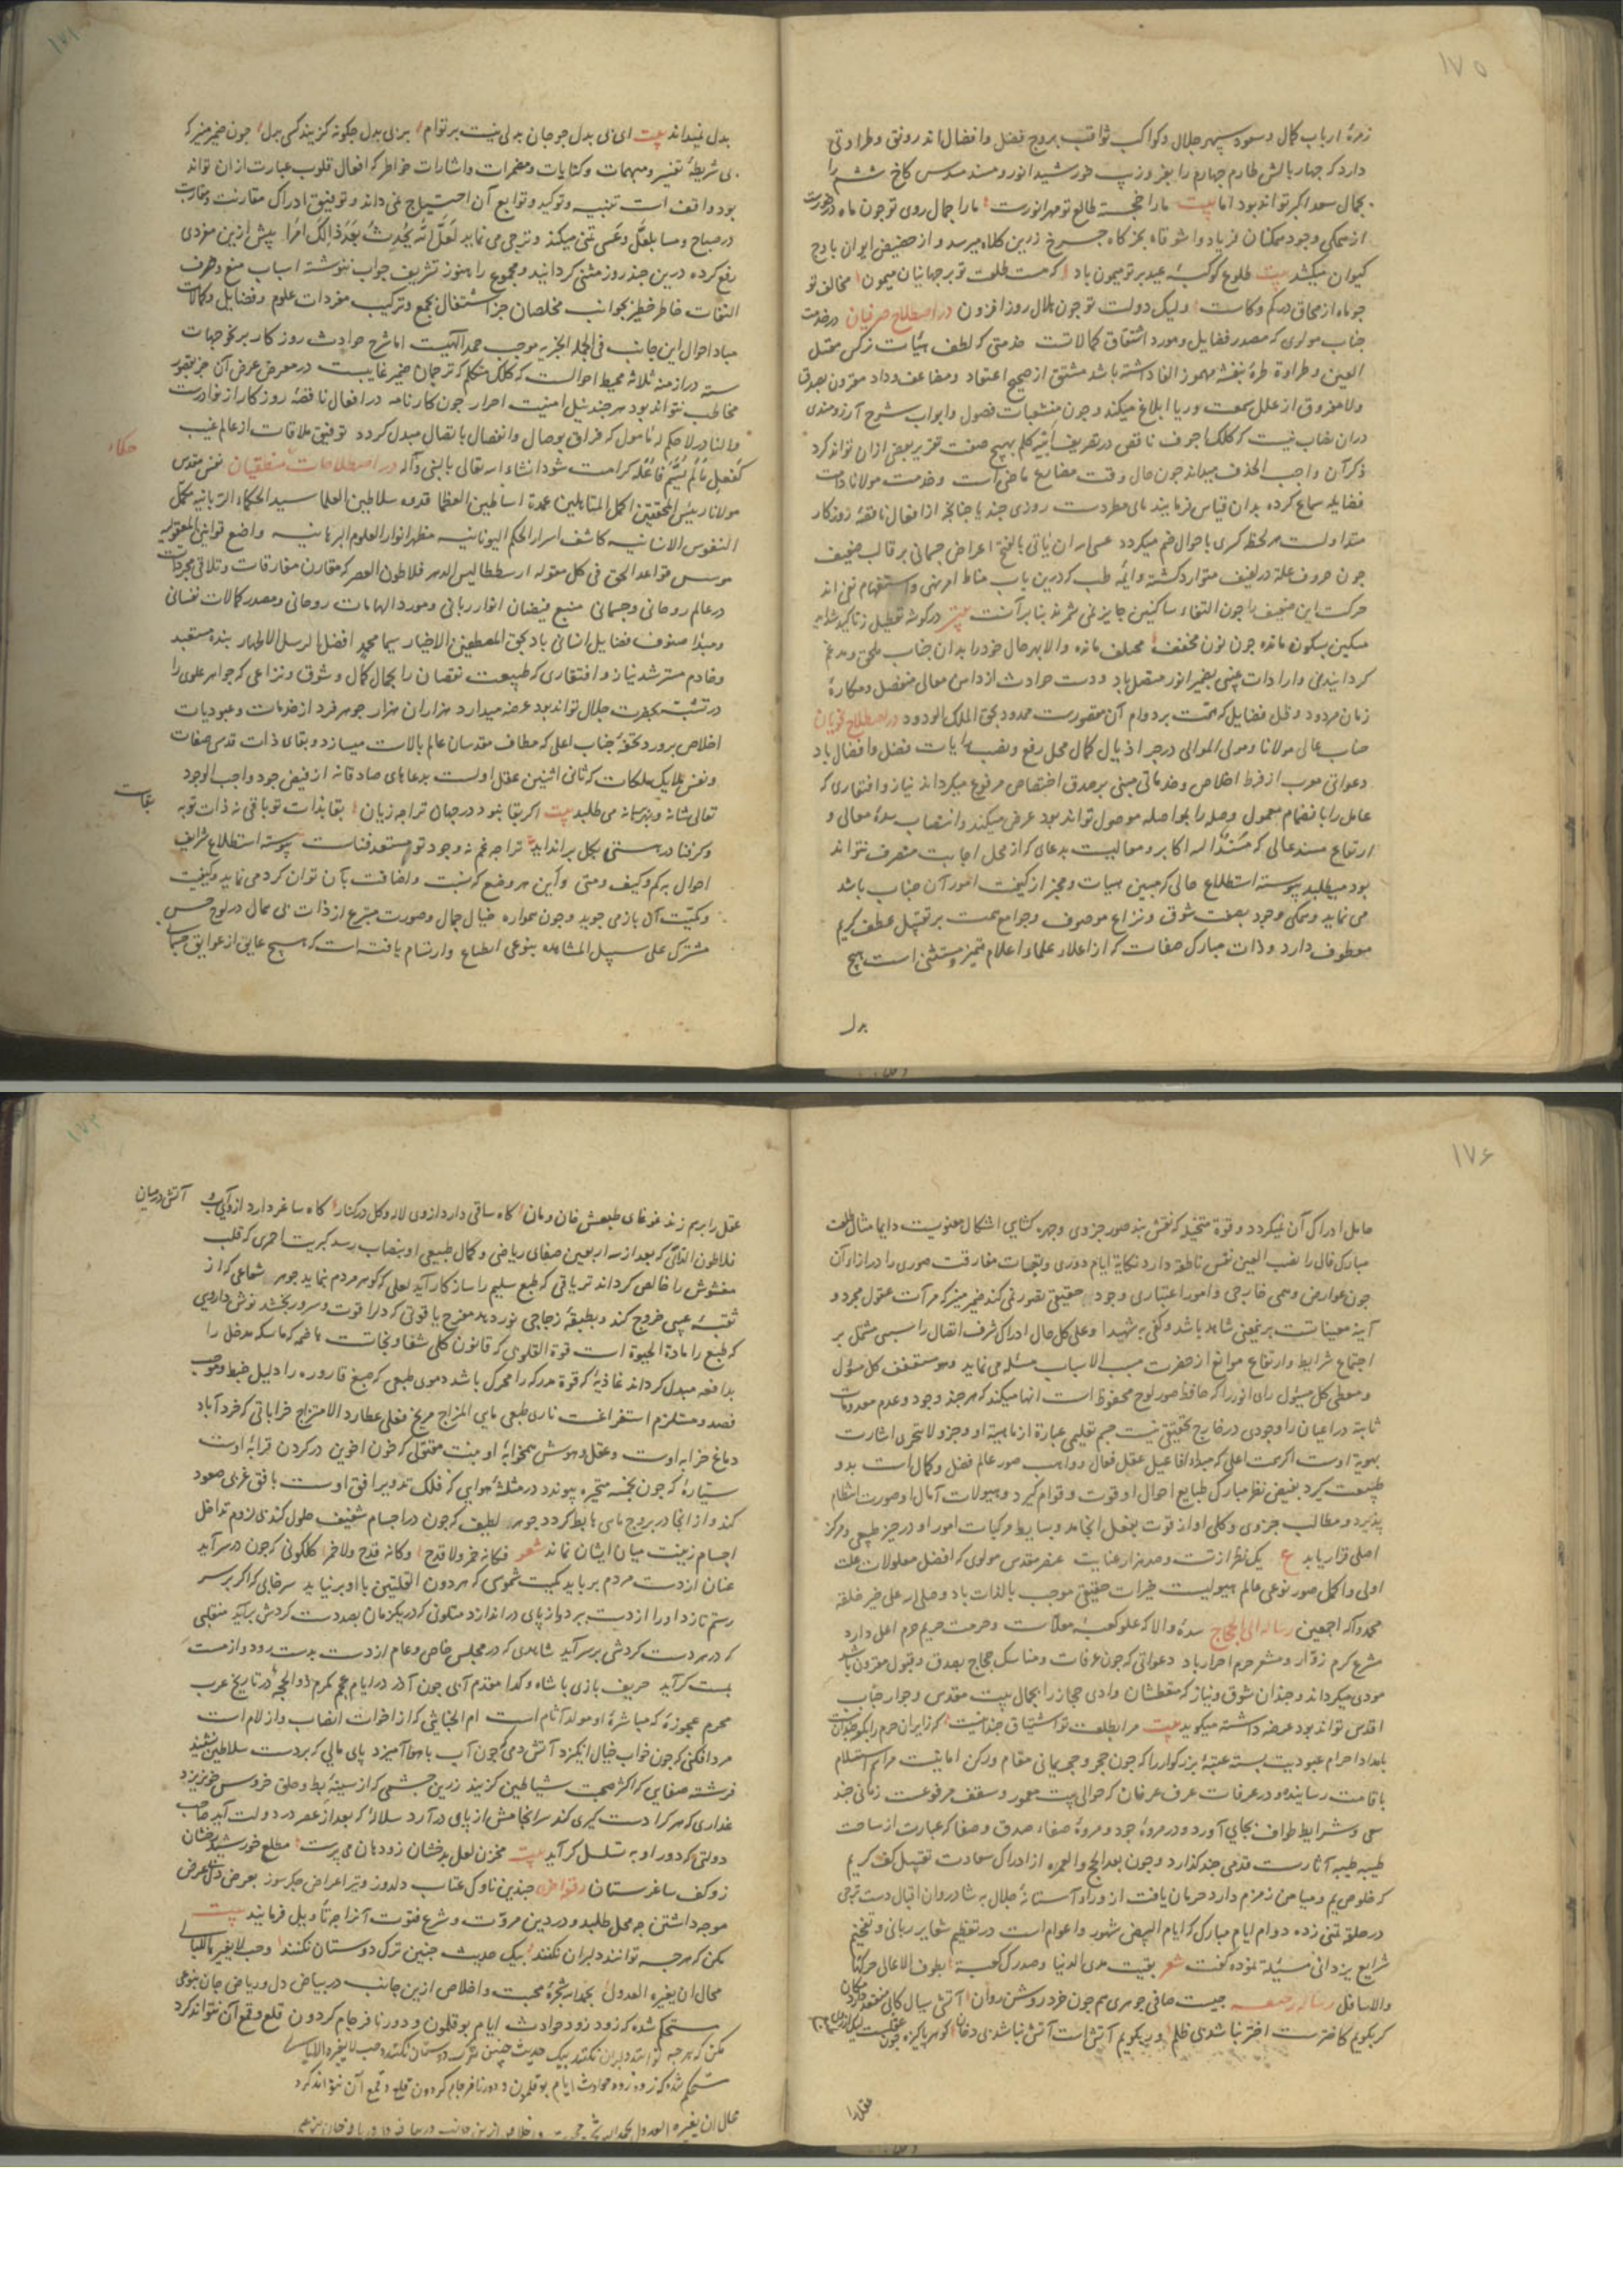 ۱۷۵
زمرهٔ ارباب کمال و سعود سپهر جلال و کواکب ثواقب بروج فضل و افضال اند رونق و طراوتی
دارد که چهار بالش طارم چهارم را بفر وزیب خورشید انور و مسند مسدس کاخ ششم را
بجمال سعد اکبر تواند بود اما بیت مارا خجسته طالع تو مهر انورست مارا جمال روی تو چون ماه
از سمکی وجود ممکنان فریاد وا شوقاه بکزگاه چرخ زرین کلاه میرسد و از حضیض ایوان باوج
کیوان میکشد بیت طلوع کوکبهٔ عید بر تو میمون باد که هست طلعت تو بر جهانیان میمون مخالف تو
چو ماه از محاق در کم و کاست ولیک دولت تو چون هلال روز افزون در اصطلاح صرفیان در خدمت
جناب مولوی که مصدر فضایل و مورد اشتقاق کمالاتست خدمتی که لطف هیئات نرکس معتل
العین و طراوة طرهٔ بنفشه مهموز الفا داشته باشد مشتق از صحیح اعتقاد و مضاعف وداد مقرون بصدق
ولا مفروق از علل سمعت و ریا ابلاغ میکند و چون منشعبات فصول و ابواب شرح آرزومندی
دران نصاب نیست که کلک اجوف ناقص در تصریف ابنیه کلم بهیچ صفت تقریر بعضی ازان تواند کرد
ذکر آن واجب الحذف میداند چون حال وقت مضارع ماضی است و خدمت مولانا دامت
فضایله سماع کرده بدان قیاس فرمایند مای مطردست روزی چند یا چنانچه از افعال ناقصهٔ روزکار
متداولست هر لحظه کسری باحوال ضم میکردد عسی الله ان یاتی بالفتح اعراض جسمانی بر قالب ضعیف
چون حروف علة در لفیف متوارد کشته و ایمهٔ طب که درین باب مناط امر و نهی و استفهام نفی اند
حرکت این ضعیف را چون التقاء ساکنین جایز نمی شمرند بنا بر آنست بیت در کوشه تعطیل ز تاکید شداید
مسکین بسکون مانده چون نون مخففه مختلف مانده و الا بهر حال خود را بدان جناب ملحق و مدغم
کردانیدی و ارادات عینی بضمیر انور متصل باد و دست حوادث از دامن معالی منفصل و مکارهٔ
زمان مردود و ظل فضایل که همت بر دوام آن مقصورست ممدود بحق الملک الودود در اصطلاح نحویان
جناب عالی مولانا و مولی الموالی در جر اذیال کمال محل رفع و نصب رایات فضل و افضال باد
دعواتی معرب از فرط اخلاص و خدماتی مبنی بر صدق اختصاص مرفوع میکرداند نیاز و افتقاری که
عامل را بانضمام معمول وصله را بواصله موصول تواند بود عرض میکند و انتصاب سدهٔ معالی و
ارتفاع مسند عالی که مسندالیه اکابر و معالیست بدعای که از محل اجابت منصرف نتواند
بود میطلبد پیوسته استطلاع حالی که مبین هیات و مخبر از کیفیت امور آن جناب باشد
می نماید و همکی وجود بصفت شوق و نزاع موصوف و جوامع همت بر تقبیل عطف کریم
معطوف دارد و ذات مبارک صفات که از اعلام علماء اعلام متمیز و مستثنی است هیچ
بدل
بدل نمیداند بیت ای بی بدل چو جان بدلی نیست بر توام بر بی بدل چگونه گزیند کسی بدل چون ضمیر منیر که
بی شریطهٔ تفسیر و مبهمات و کنایات و مضمرات و اشارات خواطر که افعال قلوب عبارت ازان تواند
بود واقف است تنبیه و توکید و توابع آن احتیاج نمی داند و توفیق ادراک مقارنت و مقاربت
در صباح و مسا بلعل و عسی تمنی میکند و ترجی می نماید لعل الله یحدث بعد ذالک امرا پیش ازین موذی
رفع کرده درین چند روز مثنی کردانید و مجموع را هنوز تشریف جواب ننوشته اسباب منع و صرف
التفات خاطر خطیر بجوانب مخلصان جز اشتغال بجمع و ترکیب مفردات علوم و فضایل و کمالات
مباد احوال این جانب فی الجمله الخبریه موجب حمد الهیست اما شرح حوادث روزکار بر نحو جهات
سته در ازمنه ثلاثه محیط احوالست که کلک متکلم که ترجمان ضمیر غایبست در معرض عرض آن جز بحضور
مخاطب نتواند بود هر چند نیل امنیت احرار چون کارنامه در افعال ناقصهٔ روزکار از نوادرست
و النادر لا حکم له مامول که فراق بوصال و انفصال باتصال مبدل کردد توفیق ملاقات از عالم غیب
کفعل ما لم یسم فاعله کرامت شود انشاء الله تعالی بالنبی و آله در اصطلاحات منطقیان نفس مقدس
حکماء
مولانا رئیس المحققین اکمل المتالهین عمدة اساطین العظما قدوه سلاطین العلما سید الحکماء الربانیه مکمل
النفوس الانسانیه کاشف اسرار الحکم الیونانیه مظهر انوار العلوم البرهانیه واضع قوانین المعقول
موسس قواعد الحق فی کل مقوله ارسطاطالیس الدهر فلاطون العصر که مقارن مفارقات و تلاقی مجردات
در عالم روحانی و جسمانی منبع فیضان انوار ربانی و مورد الهامات روحانی و مصدر کمالات نفسانی
و مبدا صنوف فضایل انسانی باد بحق المصطفین الاخیار سیما محمد افضل الرسل الاطهار بنده مستعبد
و خادم مسترشد نیاز و افتقاری که طبیعت نقصان را بجمال کمال و شوق و نزاعی که جواهر علوی را
در تشبه بحضرت جلال تواند بود عرضه میدارد هزاران هزار جوهر فرد از خدمات و عبودیات
اخلاص برورد تحفهٔ جناب اعلی که مطاف مقدسان عالم بالاست میسازد و بقای ذات قدسی صفات
و نفس ملایک ملکات که ثانی اثنین عقل اولست بدعاهای صادقانه از فیض جود واجب الوجود
تعالی شانه و بدیع سلطانه می طلبد بیت اکر بقا نبود در جهان ترا چه زیان بقا بذات تو باقی نه ذات تو به
بقاست
وکر فنا در هستی بکل بر انداید ترا چه غم نه وجود تو مستعد فناست پیوسته استطلاع شرایف
احوال به کم و کیف و متی و این هر وضع که نسبت و اضافت بآن توان کرد می نماید و کیفیت
و کمیت آن باز می جوید و چون همواره خیال جمال و صورت منتزع از ذات بی همال در لوح حس
مشترک علی سبیل المشاهده بنوعی انطباع و ارتسام یافته است که هیچ عایق از عوایق جسمانی
۱۷۶
حامل ادراک آن نمیکردد و قوة متخیله که نقش بند صور جزوی و چهره کشای اشکال معنویست دایما مثال طلعت
مبارک فال را نصب العین نفس ناطقه دارد نکایه ایام دوری و تبعات مفارقت صوری را در ازاء آن
چون عوارض وهمی خارجی و امور اعتباری وجود حقیقی تصور نمی کند ضمیر منیر که مرآت عقول مجرد و
آینهٔ مغیباتست بر یقینی شاهد باشد و کفی به شهیدا و علی کل حال ادراک شرف اتصال را مسببی مشتمل بر
اجتماع شرایط و ارتفاع موانع از حضرت مسبب الاسباب مسئله می نماید و هو مستقف کل مسؤل
و معطی کل مسؤل رای انور را که حافظ صور لوح محفوظ است انها میکند که هر چند وجود و عدم معدومات
ثابته در اعیان را وجودی در خارج تحقیقی نیست جسم تعلیمی عبارة از ماهیة او و جزو لا یتجزی اشارت
بهویة اوست اکر همت اعلی که مبداء افاعیل عقل فعال و واهب صور عالم فضل و کمال است بدو
پیوست گیرد بفیض نظر مبارک طبایع احوال او قوت و قوام گیرد و هیولات آمال او صورت انتظام
پذیرد و مطالب جزوی و کلی او از قوت بفعل انجامد و بسایط و مرکبات امور او در حیز طبیعی و مرکز
اصلی قرار یابد ع یک نظر از تست و صد هزار عنایت عنصر مقدس مولوی که افضل معلولات علت
اولی و اکمل صور نوعی عالم هیولیست خیرات حقیقی موجب بالذات باد وصلی الله علی خیر خلقه
محمد و آله اجمعین رساله الی الحجاج سدهٔ والا که علو کعبهٔ معلاست و حرمت حریم حرم اعلی دارد
مشرع کرم زوار و مشعر حرم احرار باد دعواتی که چون عرفات و مناسک حجاج بصدق و قبول مقرون باشد
مودی میکرداند و چندان شوق و نیاز که متعطشان وادی حجاز را بجمال بیت مقدس و جوار جناب
اقدس تواند بود عرضه داشته میکوید بیت مرا بطلعت تو اشتیاق چندانیست که زایران حرم را
بامداد احرام عبودیت بسته عتبهٔ بزرکوار را که چون حجر و حجر یمانی مقام و رکن امانیست مراسم استلام
باقامت رسانیده و در عرفات عرف عرفان که حوالی بیت معمور و سقف مرفوعست زمانی چند
سعی و شرایط طواف بجای آورد و در مروهٔ جود و مروهٔ صفاء صدق و صفا که عبارت از ساحت
طیبه طیبه آثارست قدمی چند کذارد و چون بعد الحج و العمره از ادراک سعادت تقبیل کف کریم
که خلوص یم و میامن زمزم دارد حرمان یافت از وراء آستانهٔ جلال به شادروان اقبال دست ترجی
در حلقهٔ تمنی زده دوام ایام مبارک که ایام البیض شهور و اعوام است در تعظیم شعایر ربانی و تفخیم
شرایع یزدانی مسئلة نموده گفت شعر بقیت مدی الدنیا و صدرک کعبة یطوف الاعالی حولها
والاسافل رساله خمریه چیست صافی جوهری هم چون خرد روشن روان آتشی سیال کانی منعقد
کر بکویم کاخترست اختر نباشدی ظلم ور بکویم آتش است آتش نباشدی دخان کوهر پاکیزه چون
عقل را
آتش در میان
عقل را برهم زند غوغای طبعش خان و مان گاه ساقی دارد ازوی لاله و گل در کنار گاه ساغر دارد از وی آب و
فلاطون الذاتی که بعد از سه اربعین صفای ریاضی و کمال طبیعی او بنصاب رسد کبریت احمری که قلب
مغشوش را خالص کرداند تریاقی که طبع سلیم را سازکار آید لعلی که کوهر مردم نماید جوهر شعاعی که از
ثقبهٔ عینی خروج کند و بطبقهٔ زجاجی نور دهد مفرح یاقوتی که دلرا قوت و سرور بخشد نوش دارویی
که طبع را مادة الحیوة است قوة القلوبی که قانون کلی شفا و نجاتست هاضمه که ماسکه مدخل را
بدافعه مبدل کرداند غاذیهٔ که قوة مدرکه را محرک باشد دموی طبعی که صبغ قاروره را دلیل ضبط و موجب
فصد و مستلزم استفراغست ناری طبعی مایی المزاج مریخ فعلی عطارد الامتزاج خراباتی که خرد آباد
دماغ خرابه اوست و عقل و هوش همخوابهٔ او بنت مقتولی که خون اخوین در کردن قرابهٔ اوست
ستیارهٔ که چون بخمسهٔ متحیره پیوندد در مثلثهٔ هوایی که فلک تدویر افق اوست بافق غربی صعود
کند و از انجا در بروج مای هابط کردد جوهر لطیف که چون در اجسام شفیف حلول کند بی لزوم تداخل
اجسام زینت میان ایشان نماند شعر فکانه خمر ولا قدح وکانه قدح ولا خمر کلکونی که چون در سر آید
عنان از دست مردم برباید کمیت شموسی که هر دون القلتین با او بر نیاید سرخابی که اگر بر سر
رستم تازد او را از دست ببرد و از پای در اندازد متلونی که در یکزمان بصد دست کردش بر آید منقلبی
که در هر دست کردشی بر سر آید شاهدی که در مجلس خاص و عام از دست بدست رود و از مست
بمست کر آید حریف بازی با شاه و کدا مقدم آبی چون آذر در ایام عجم مکرم ذوالحجه در تاریخ عرب
محرم عجوزهٔ که مباشرهٔ او مولد آثام است ام الخبائثی که از اخوات انصاب و ازلام است
مرد افکنی که چون خواب خیال انکیزد آتش دمی که چون آب با هوا آمیزد پای مالی که بر دست سلاطین نشیند
فرشته صفایی که اکثر صحبت شیاطین کزیند زرین چشمی که از سینهٔ بط و حلق خروس خون ریزد
غداری که هر کرا دست گیری کند سرانجامش از پای در آرد سلالهٔ که بعد از عصر در دولت آید صاحب
دولتی که دور او به تسلسل کر آید بیت مخزن لعل بدخشان زو دهان می پرست مطلع خورشید رخشان
زو کف ساغر ستان رقعه اخری چندین ناوک عتاب دلدوز و تیر اعراض جکر سوز بعرض دل
موجه داشتن چه محل طلبد و در دین مروت و شرع فتوت آنرا چه تأویل فرمایند بیت
مکن که هر چه توانند دلبران نکنند بیک حدیث چنین ترک دوستان نکنند وحب لا یغیره اللیالی
محال ان یغیره العدول بحمدالله شجرهٔ محبت و اخلاص ازین جانب در بیاض دل و ریاض جان بنوعی
مستحکم شده که زود زود حوادث ایام بوقلمون و دور نافرجام کردون قلع و قمع آن نتواند کرد
مکن که هر چه توانند دلبران نکنند بیک حدیث چنین ترک دوستان نکنند وحب لا یغیره اللیالی
مستحکم شده که زود زود حوادث ایام بوقلمون و دور نافرجام کردون قلع و قمع آن نتواند کرد
محال ان یغیره العدول بحمدالله